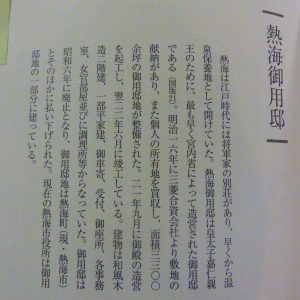 熱海御用邸
熱海は江戸時代には将軍家の別荘があり、早くから温
泉保養地として開けていた。熱海御用邸は皇太子嘉仁親
王のために、最も早く宮内省によって造営された御用邸
である（図版21）。明治一六年に三菱合資会社より敷地の
献納があり、また個人の所有地を買収し、面積三三〇〇
余坪の御用邸地が整備された。二一年九月に御殿の造営
を起工し、翌二二年六月に竣工している。建物は和風木
造二階建、一部平家建、御車寄、受付、御座所、各事務
室、女官部屋並びに調理所等からなっていた。御用邸は
昭和六年に廃止となり、御用邸地は熱海町（現・熱海市）
とそのほかに払い下げられた。現在の熱海市役所は御用
邸地の一部分に建っている。